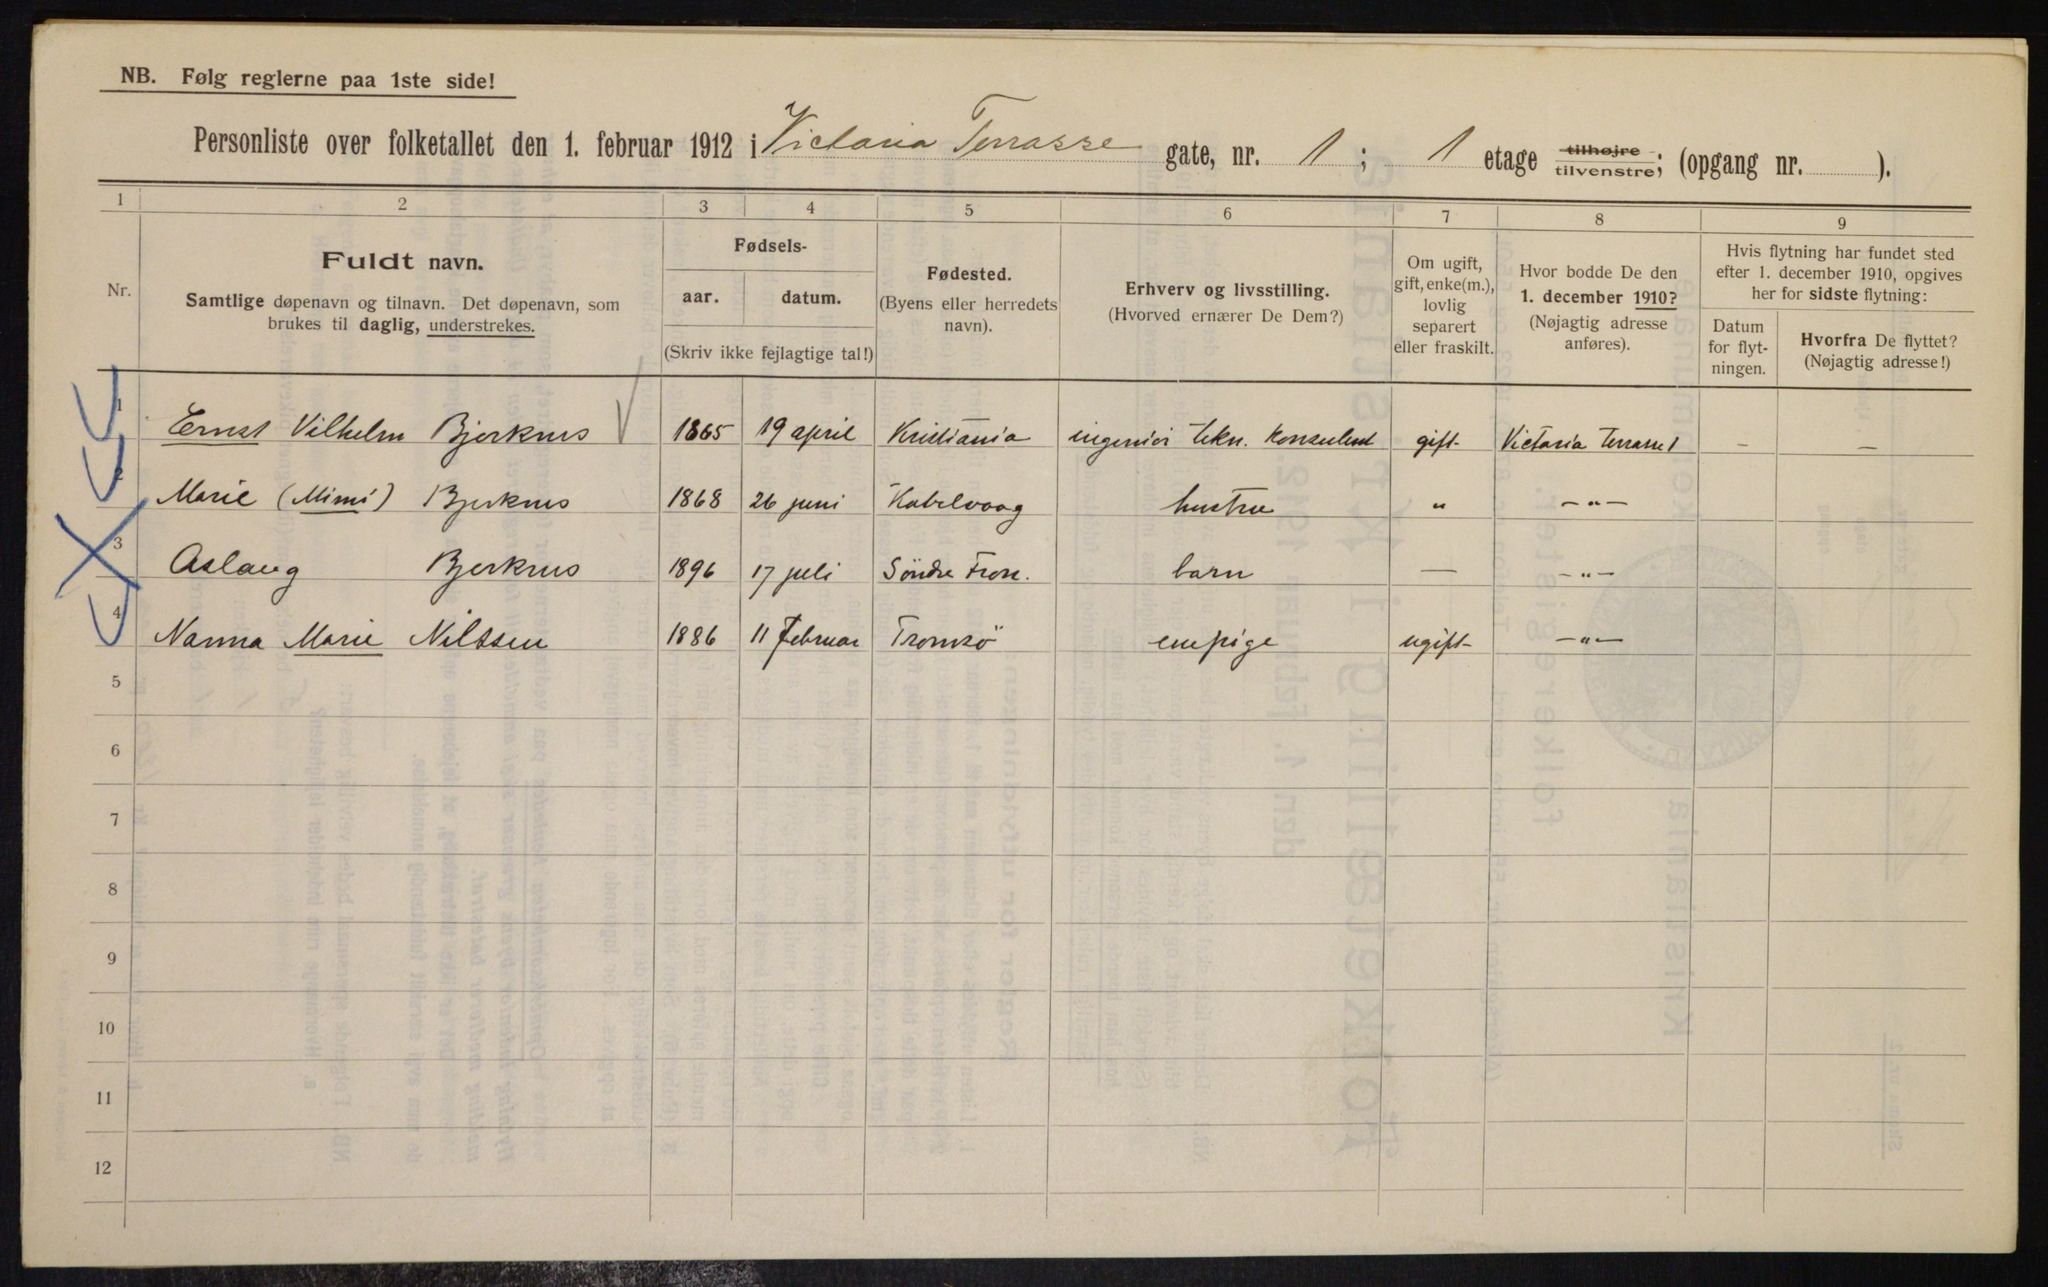 NB. Følg reglerne paa 1ste side!
Personliste over folketallet den 1. februar 1912 i Victoria Terrasse gate, nr. 1; 1 etage tilhøjre tilvenstre; (opgang nr. ).
1 2 3 4 5 6 7 8 9
Nr.
Fuldt navn.
Samtlige døpenavn og tilnavn. Det døpenavn, som
brukes til daglig, understrekes.
Fødsels-
aar. datum.
(Skriv ikke fejlagtige tal!)
Fødested.
(Byens eller herredets
navn).
Erhverv og livsstilling.
(Hvorved ernærer De Dem?)
Om ugift,
gift, enke(m.),
lovlig
separert
eller fraskilt.
Hvor bodde De den
1. december 1910?
(Nøjagtig adresse
anføres).
Hvis flytning har fundet sted
efter 1. december 1910, opgives
her for sidste flytning:
Datum
for flyt-
ningen.
Hvorfra De flyttet?
(Nøjagtig adresse!)
1 Ernst Vilhelm Bjerknes 1865 19 april Kristiania ingeniör tekn. konsulent gift Victoria Terrasse 1 — —
2 Marie (Mimi) Bjerknes 1868 26 juni Kabelvaag hustru " —"—
3 Aslaug Bjerknes 1896 17 juli Söndre Fron. barn — —"—
4 Nanna Marie Nilssen 1886 11 februar Tromsö enepige ugift —"—
5
6
7
8
9
10
11
12